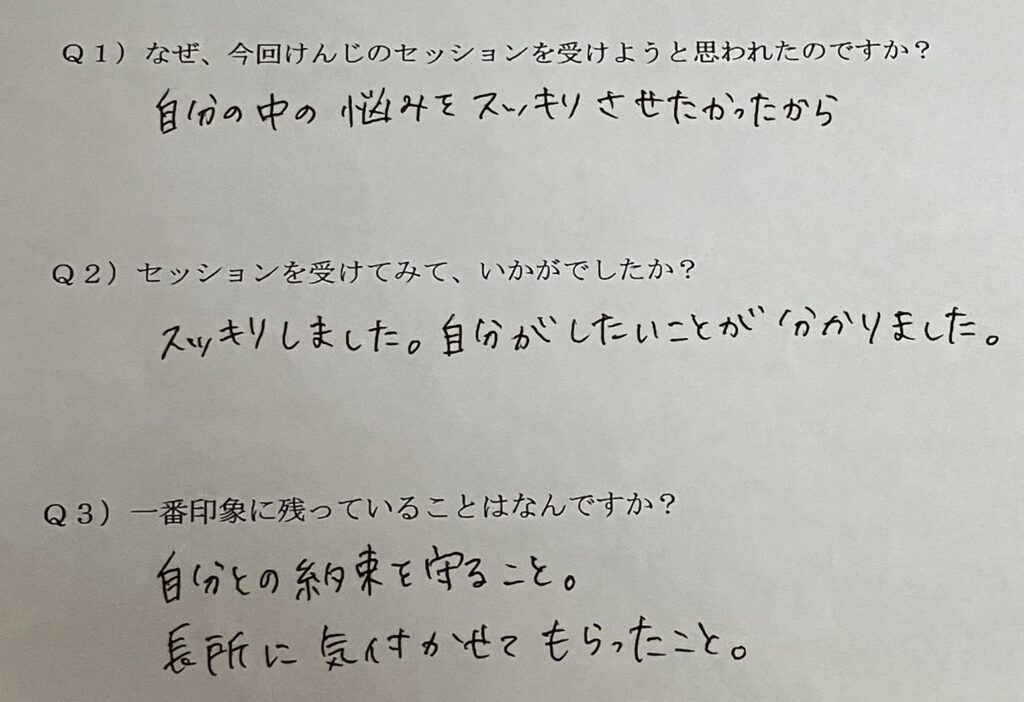 Q1）なぜ、今回けんじのセッションを受けようと思われたのですか？
自分の中の悩みをスッキリさせたかったから
Q2）セッションを受けてみて、いかがでしたか？
スッキリしました。自分がしたいことが分かりました。
Q3）一番印象に残っていることはなんですか？
自分との約束を守ること。
長所に気付かせてもらったこと。